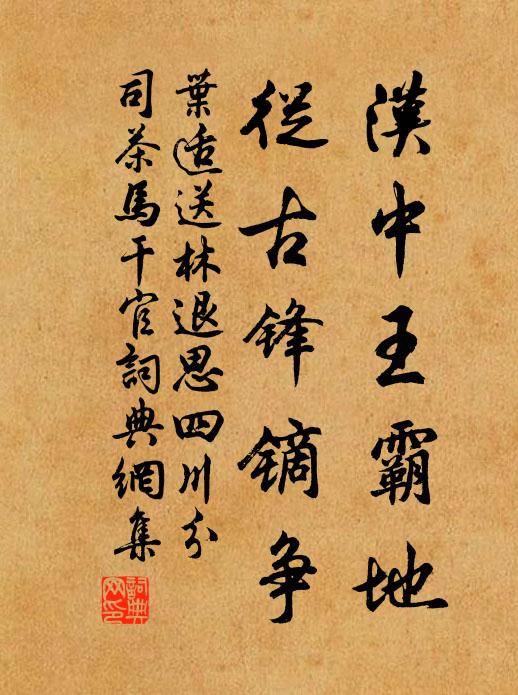 漢中王霸地
從古鋒鏑爭
葉適送林退思四川分
司茶馬干官詞典網集
詞典網印